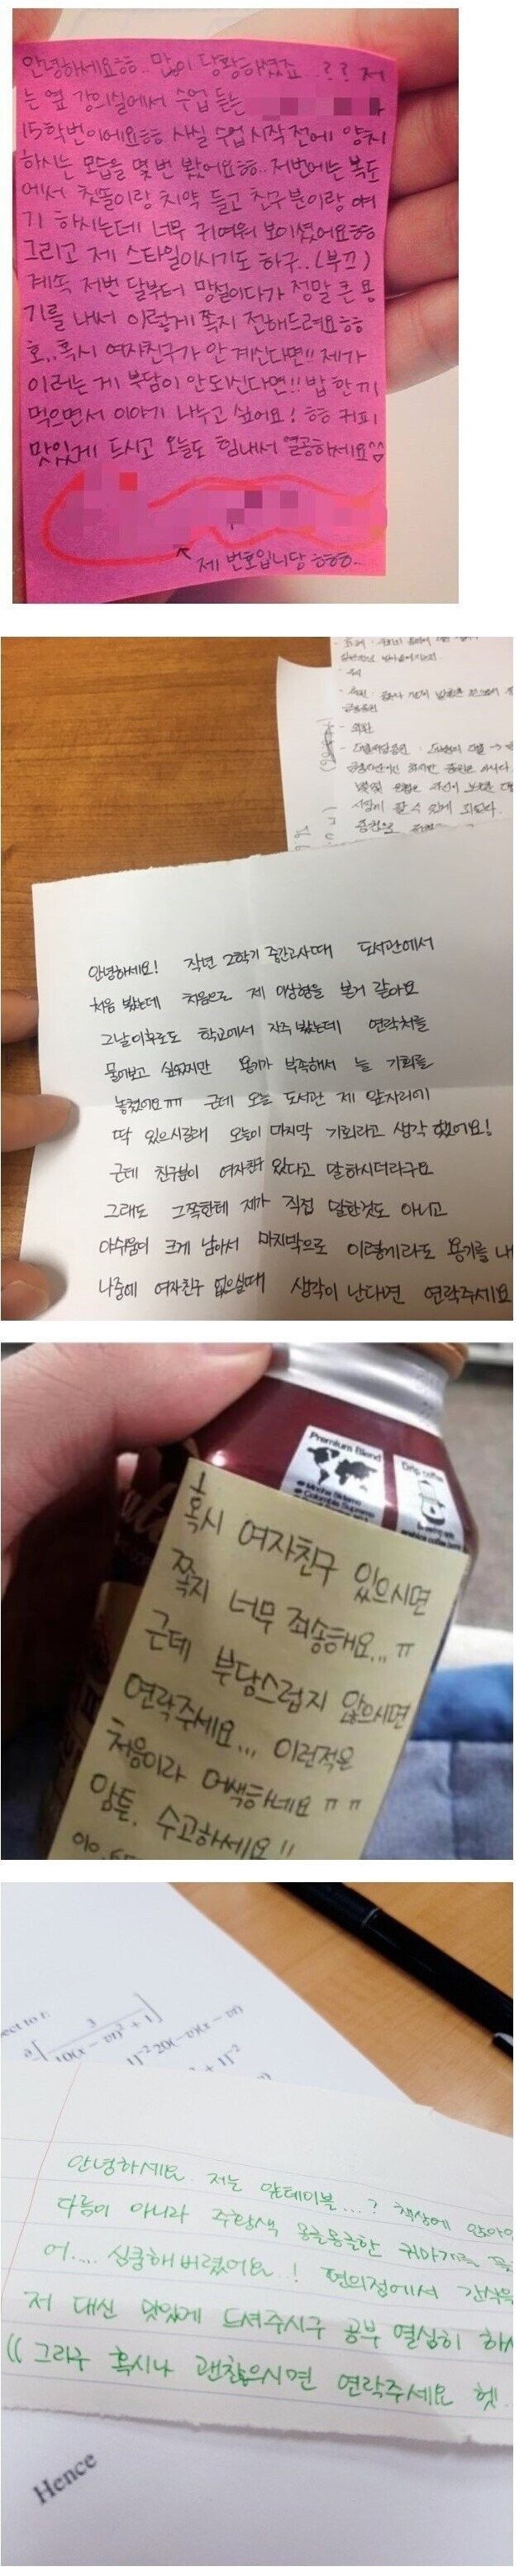 안녕하세요ㅎㅎ.. 많이 당황하셨죠..?? 저
는 옆 강의실에서 수업 듣는
15학번이에요ㅎㅎ 사실 수업 시작 전에 양치
하시는 모습을 몇 번 봤어요ㅎㅎ.. 저번에는 복도
에서 칫솔이랑 치약 들고 친구분이랑 얘
기 하시는데 너무 귀여워 보이셨어요ㅎㅎ
그리고 제 스타일이시기도 하구..(부끄)
계속 저번 달부터 망설이다가 정말 큰 용
기를 내서 이렇게 쪽지 전해드려요ㅎㅎ
호,,혹시 여자친구가 안 계신다면!! 제가
이러는 게 부담이 안되신다면!! 밥 한 끼
먹으면서 이야기 나누고 싶어요! ㅎㅎ 커피
맛있게 드시고 오늘도 힘내서 열공하세요^^
제 번호입니당 ㅎㅎㅎ..
안녕하세요! 작년 2학기 중간고사때 도서관에서
처음 봤는데 처음으로 제 이상형을 본거 같아요
그날이후로도 학교에서 자주 봤는데 연락처를
물어보고 싶었지만 용기가 부족해서 늘 기회를
놓쳤어요ㅠㅠ 근데 오늘 도서관 제 앞자리에
딱 있으시길래 오늘이 마지막 기회라고 생각 했어요!
근데 친구분이 여자친구 있다고 말하시더라구요
그래도 그쪽한테 제가 직접 말한것도 아니고
아쉬움이 크게 남아서 마지막으로 이렇게라도 용기를 내
나중에 여자친구 없으실때 생각이 난다면 연락주세요
Premium Blend
Drip coffee
혹시 여자친구 있으시면
쪽지 너무 죄송해요... ㅠ
근데 부담스럽지 않으시면
연락주세요... 이런적은
처음이라 어색하네요 ㅠㅠ
암튼, 수고하세요!!
안녕하세요. 저는 앞테이블...? 책상에 앉아
다름이 아니라 주황색 몽글몽글한 귀마개를
어.... 심쿵해버렸어요..! 편의점에서 간식을
저 대신 맛있게 드셔주시구 공부 열심히 하
(( 그라구 혹시나 괜찮으시면 연락주세요 헷!
Hence